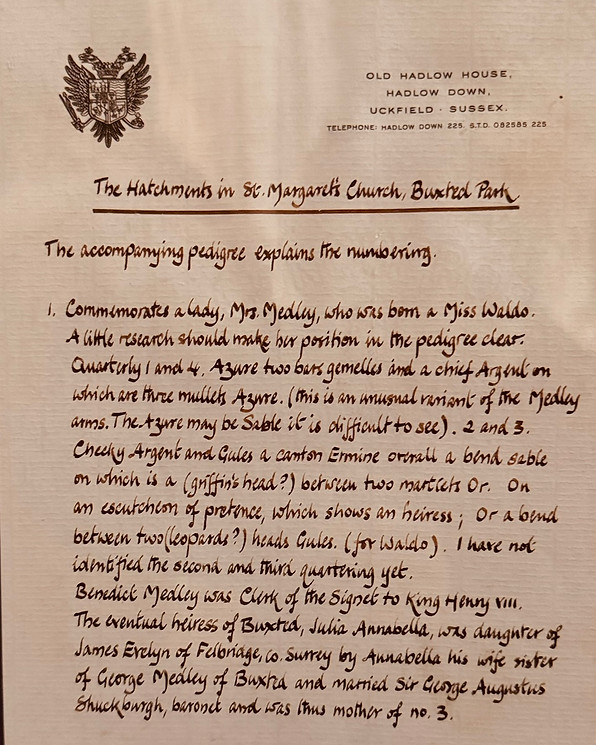 OLD HADLOW HOUSE,
HADLOW DOWN,
UCKFIELD · SUSSEX.
TELEPHONE: HADLOW DOWN 225. S.T.D. 082585 225
The Hatchments in St. Margaret's Church, Buxted Park
The accompanying pedigree explains the numbering.
1. Commemorates a lady, Mrs. Medley, who was born a Miss Waldo.
A little research should make her position in the pedigree clear.
Quarterly 1 and 4. Azure two bars gemelles and a chief Argent on
which are three mullets Azure. (this is an unusual variant of the Medley
arms. The Azure may be Sable it is difficult to see). 2 and 3.
Cheeky Argent and Gules a canton Ermine overall a bend sable
on which is a (griffin's head?) between two martlets Or. On
an escutcheon of pretence, which shows an heiress; Or a bend
between two (leopards?) heads Gules. (for Waldo). I have not
identified the second and third quartering yet.
Benedict Medley was Clerk of the Signet to King Henry VIII.
The eventual heiress of Buxted, Julia Annabella, was daughter of
James Evelyn of Felbridge, co. Surrey by Annabella his wife sister
of George Medley of Buxted and married Sir George Augustus
Shuckburgh, baronet and was thus mother of no. 3.